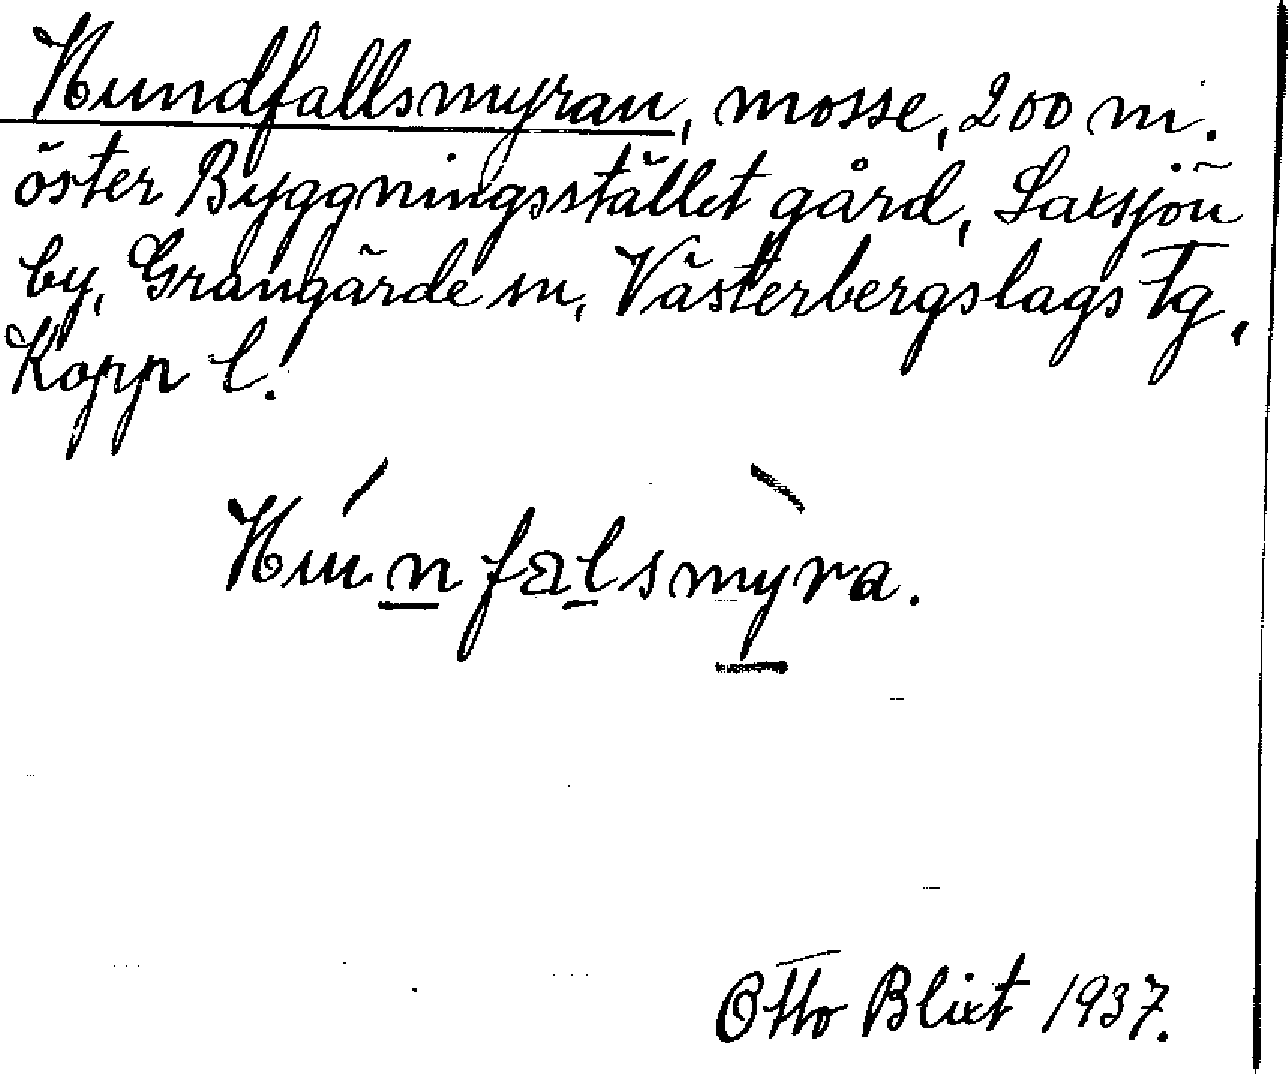 Hundfallsmyran, mosse, 200 m.
öster Byggningsstället gård, Laxsjön
by, Grangärde sn, Västerbergslags Tg,
Kopp l.
Húnfalsmỳra.
Otto Blixt 1937.